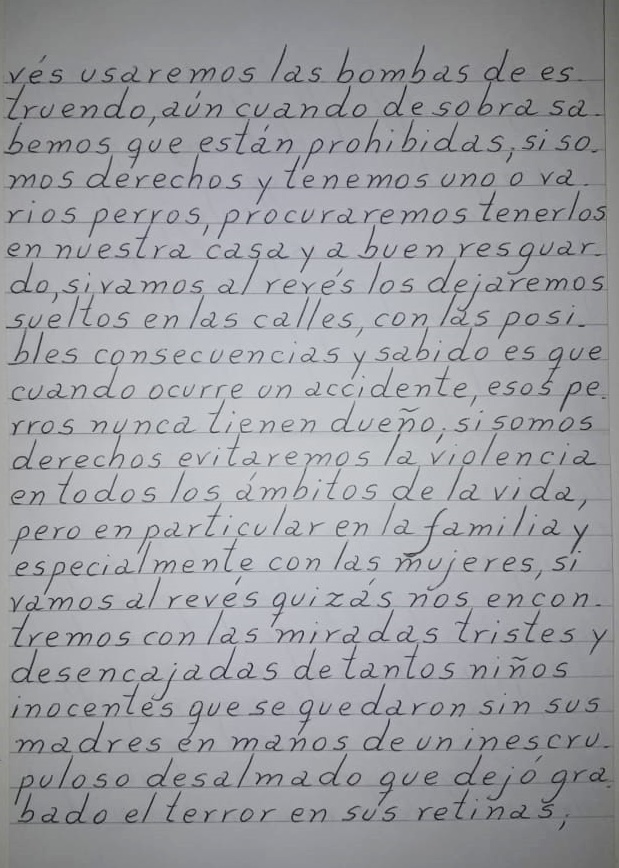 vés usaremos las bombas de es-
truendo, aún cuando de sobra sa-
bemos que están prohibidas; si so-
mos derechos y tenemos uno o va-
rios perros, procuraremos tenerlos
en nuestra casa y a buen resguar-
do, si vamos al revés los dejaremos
sueltos en las calles, con las posi-
bles consecuencias y sabido es que
cuando ocurre un accidente, esos pe-
rros nunca tienen dueño; si somos
derechos evitaremos la violencia
en todos los ámbitos de la vida,
pero en particular en la familia y
especialmente con las mujeres, si
vamos al revés quizás nos encon-
tremos con las miradas tristes y
desencajadas de tantos niños
inocentes que se quedaron sin sus
madres en manos de un inescru-
puloso desalmado que dejó gra-
bado el terror en sus retinas;